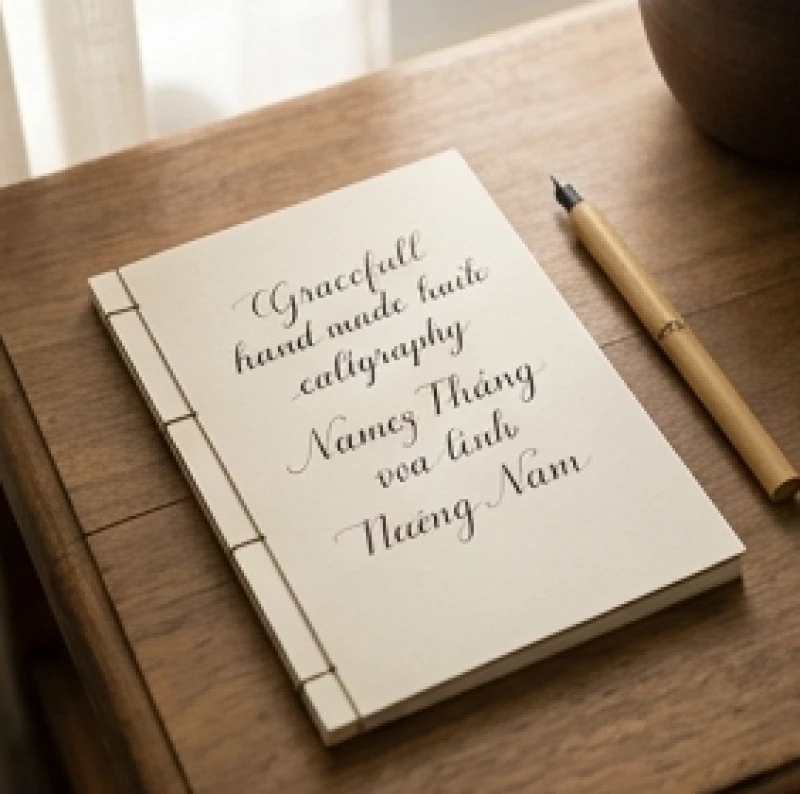 Gracefull
hand made haite
caligraphy
Names Tháng
voa linh
Nuêng Nam